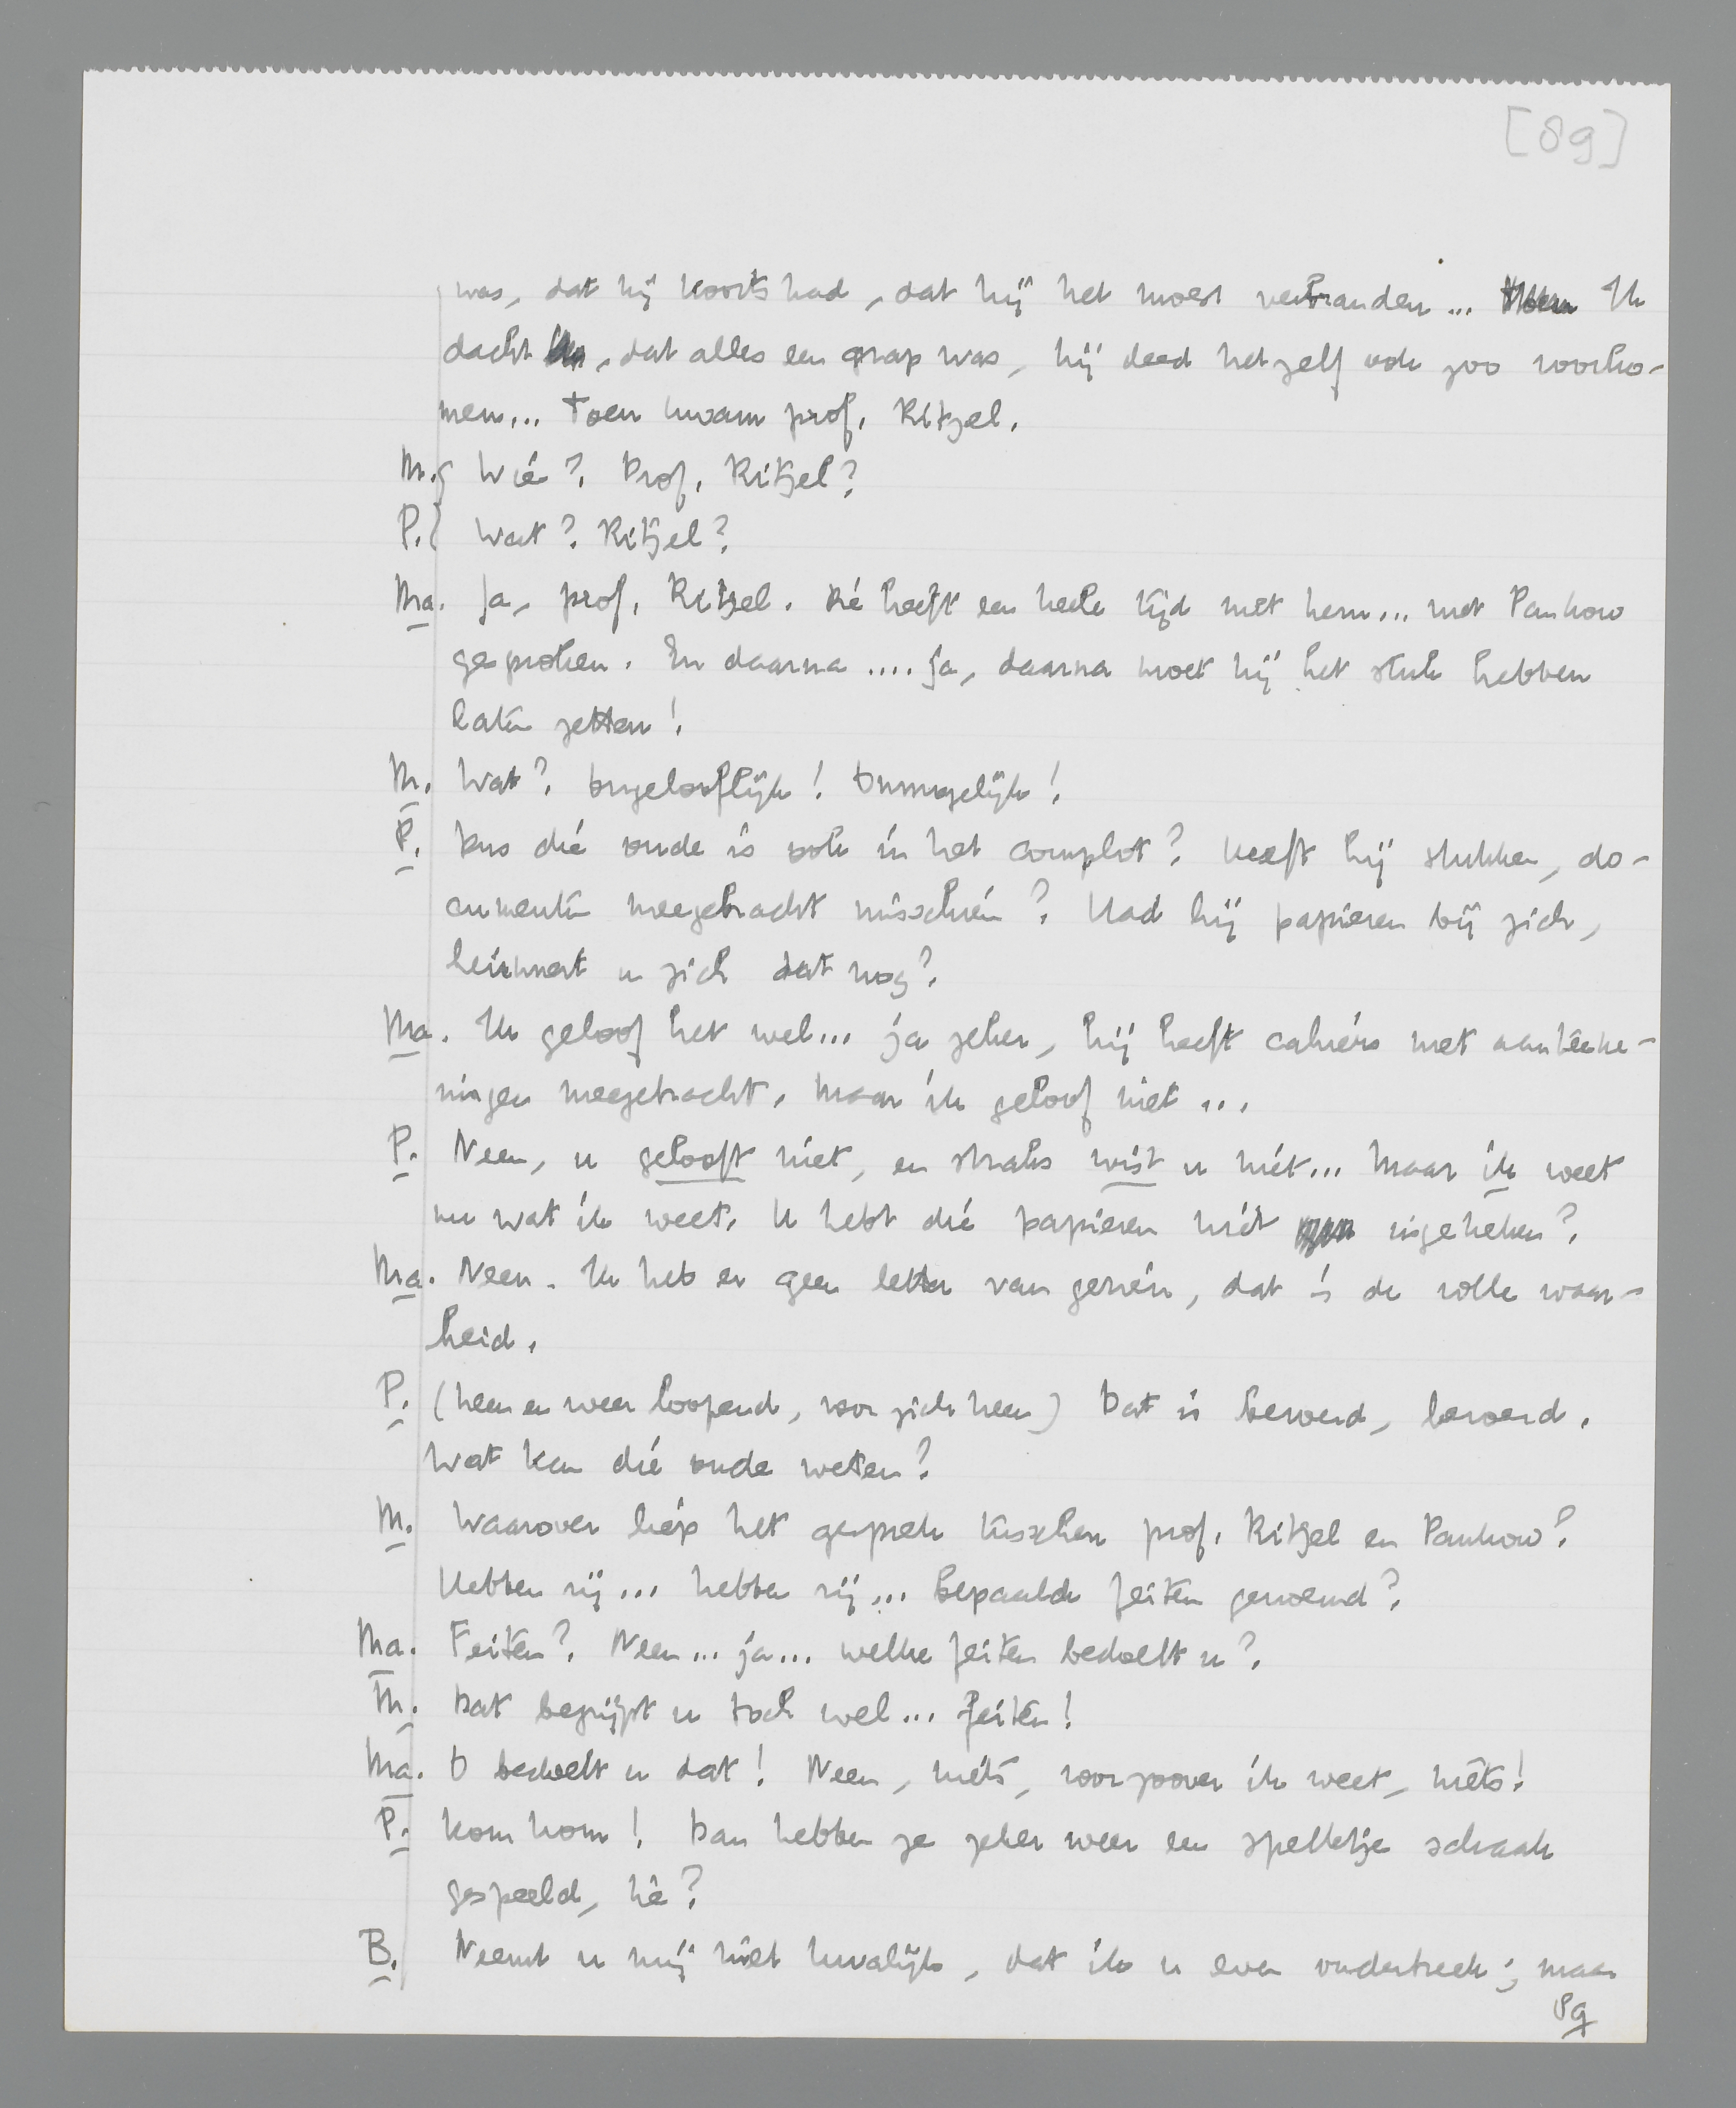 [89]
was, dat hij koorts had, dat hij het moest verbranden... Ik
dacht, dat alles een grap was, hij deed het zelf ook zoo voorko-
men... Toen kwam prof. Ritzel.
M. Wie? Prof. Ritzel?
P. Wat? Ritzel?
Ma. Ja, prof. Ritzel. Die heeft een heele tijd met hem... met Pankow
gesproken. En daarna .... ja, daarna moet hij het stuk hebben
laten zetten!
M. Wat? Ongelooflijk! Onmogelijk!
P. Dus die oude is ook in het complot? Heeft hij stukken, do-
cumenten meegebracht misschien? Had hij papieren bij zich,
herinnert u zich dat nog?
Ma. Ik geloof het wel... ja zeker, hij heeft cahiers met aanteeke-
ningen meegebracht. Maar ik geloof niet ...
P. Neen, u gelooft niet, en straks wist u niet... Maar ik weet
nu wat ik weet. U hebt die papieren niet ingekeken?
Ma. Neen. Ik heb er geen letter van gezien, dat is de volle waar-
heid.
P. (heen en weer loopend, voor zich heen) Dat is beroerd, beroerd.
Wat kan die oude weten?
M. Waarover liep het gesprek tusschen prof. Ritzel en Pankow?
Hebben zij... hebben zij... bepaalde feiten genoemd?
Ma. Feiten? Neen... ja... welke feiten bedoelt u?
M. Dat begrijpt u toch wel... feiten!
Ma. O bedoelt u dat! Neen, niets, voor zoover ik weet, niets!
P. Kom kom! Dan hebben ze zeker weer een spelletje schaak
gespeeld, hè?
B. Neemt u mij niet kwalijk, dat ik u even onderbreek; maar
89